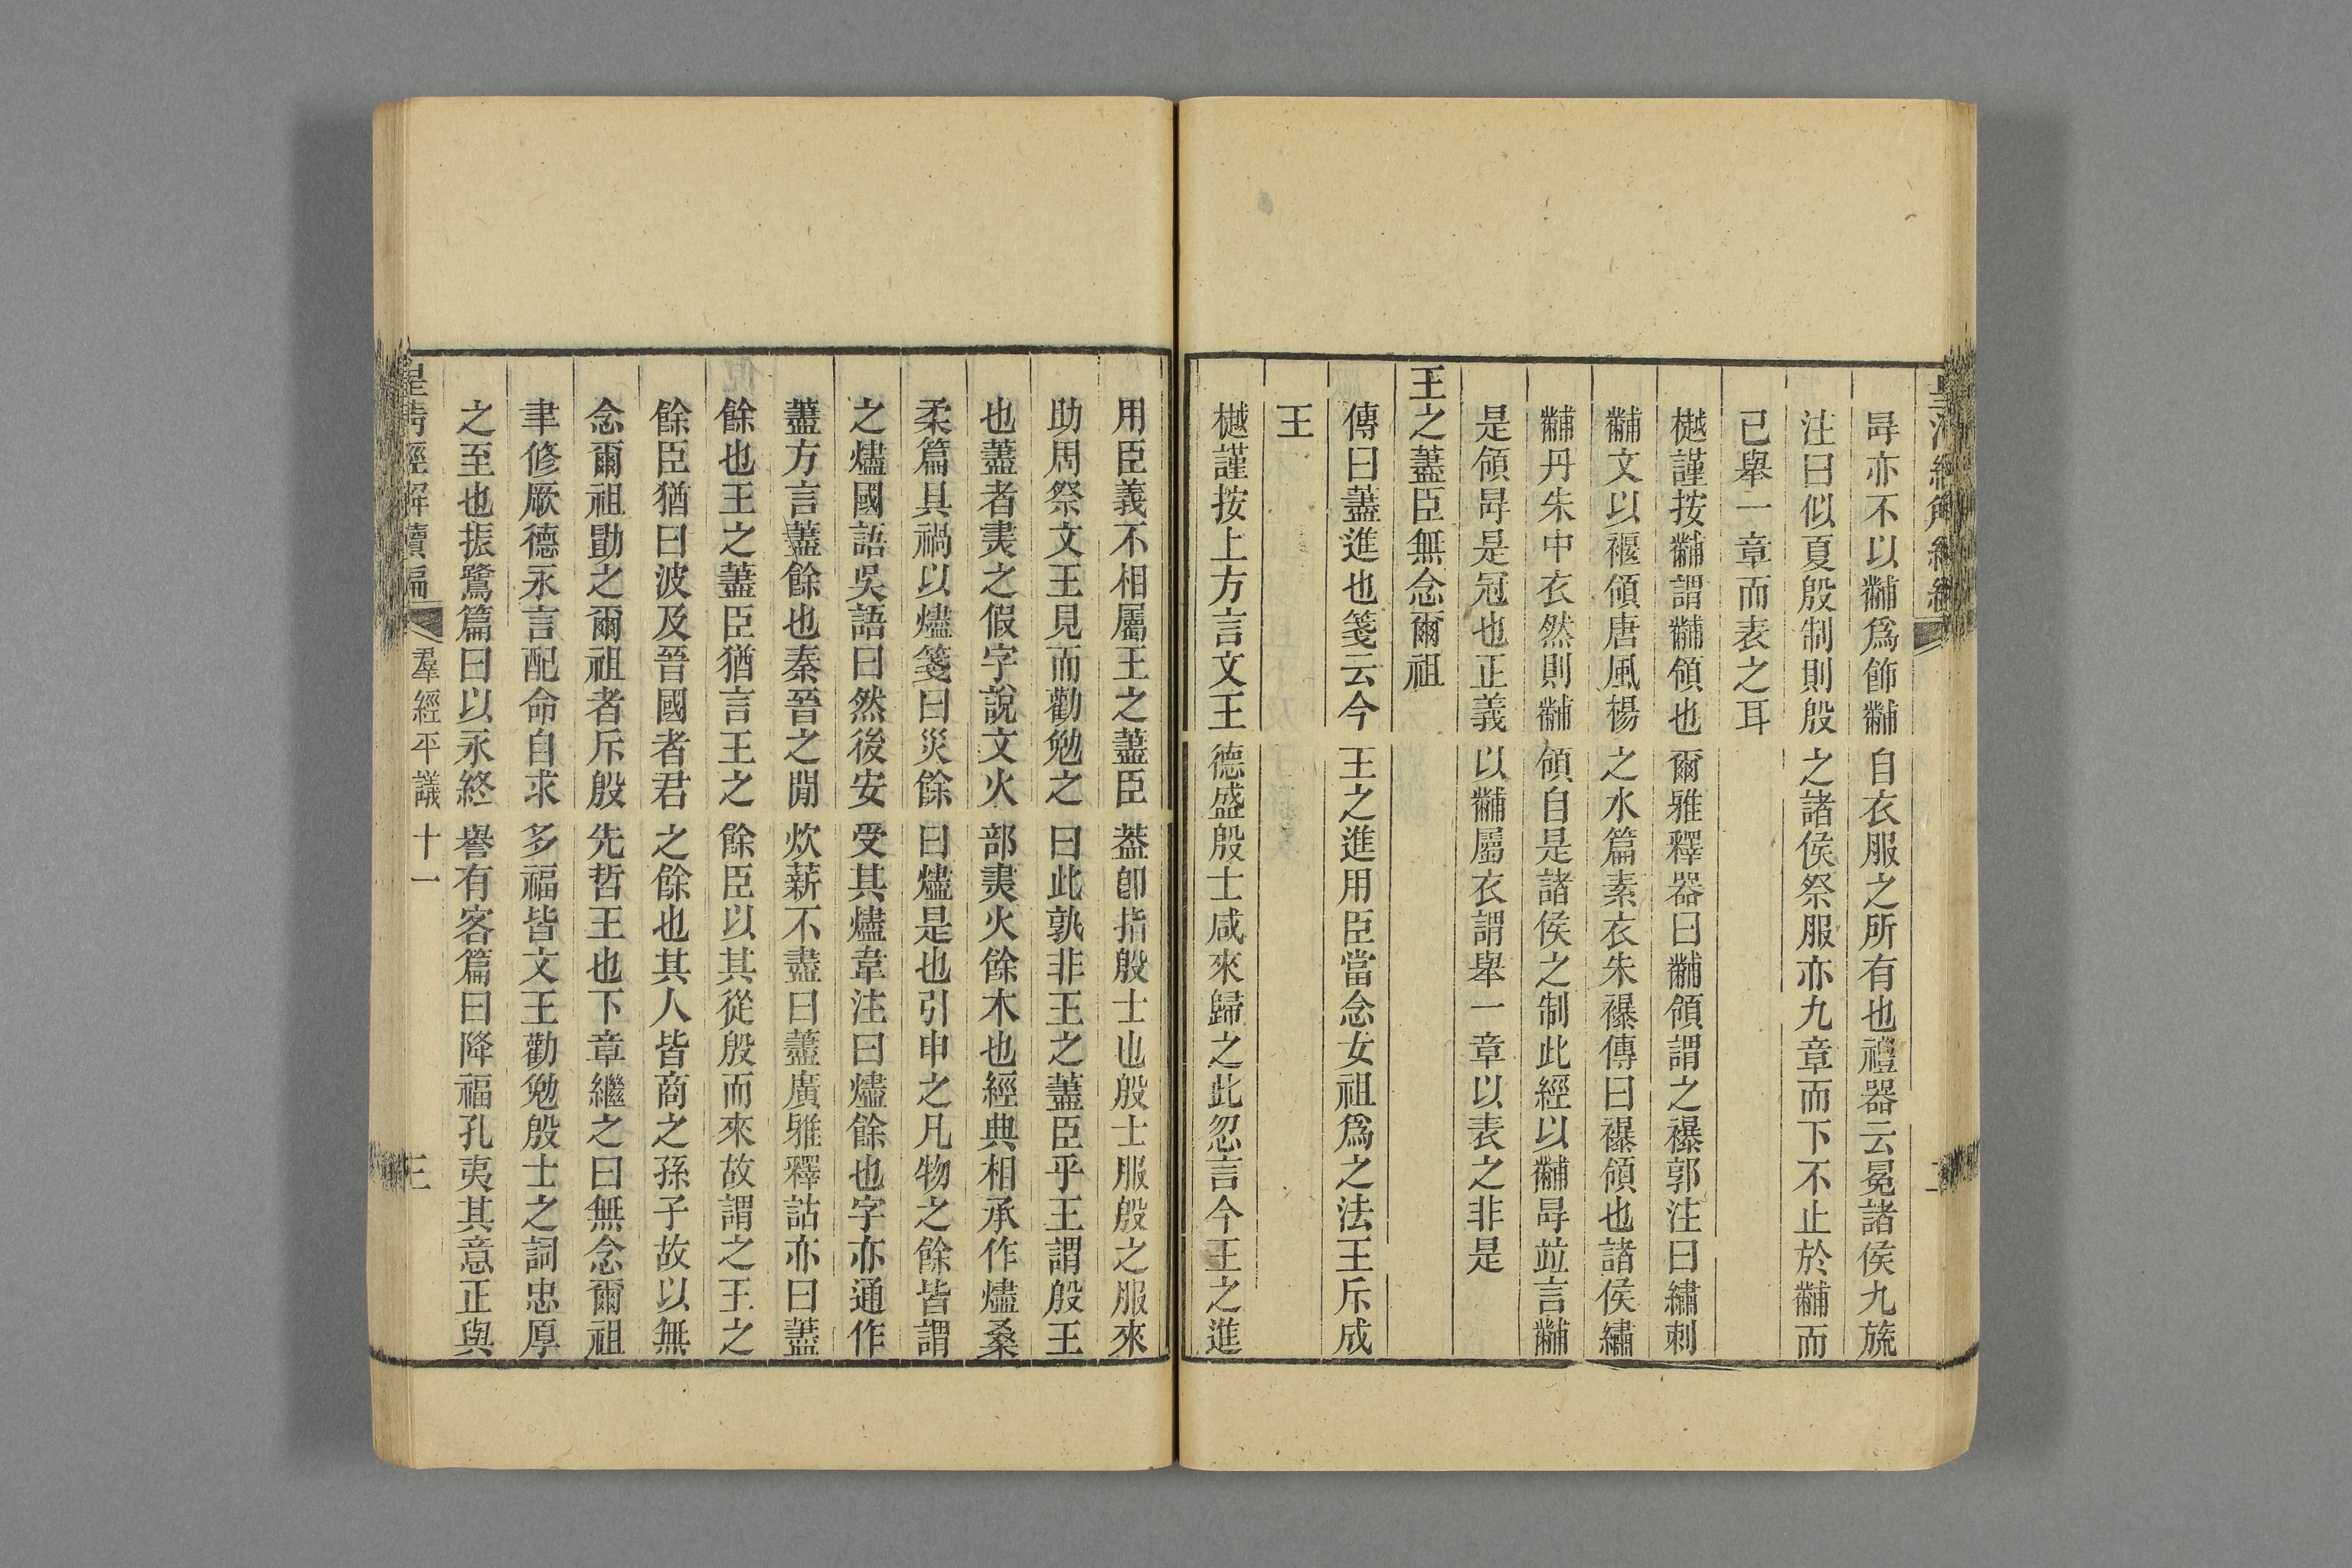 冔亦不以黼爲飾黼自衣服之所有也禮器云冕諸侯九旒
注曰似夏殷制則殷之諸侯祭服亦九章而下不止於黼而
已舉一章而表之耳
樾謹按黼謂黼領也爾雅釋器曰黼領謂之襮郭注曰繡刺
黼文以褗領唐風楊之水篇素衣朱襮傳曰襮領也諸侯繡
黼丹朱中衣然則黼領自是諸侯之制此經以黼冔竝言黼
是領冔是冠也正義以黼屬衣謂舉一章以表之非是
王之藎臣無念爾祖
傳曰藎進也箋云今王之進用臣當念女祖爲之法王斥成
王
樾謹按上方言文王德盛殷士咸來歸之此忽言今王之進
用臣義不相屬王之藎臣葢卽指殷士也殷士服殷之服來
助周祭文王見而勸勉之曰此孰非王之藎臣乎王謂殷王
也藎者㶳之假字說文火部㶳火餘木也經典相承作燼桑
柔篇具禍以燼箋曰災餘曰燼是也引申之凡物之餘皆謂
之燼國語吳語曰然後安受其燼韋注曰燼餘也字亦通作
藎方言藎餘也秦晉之閒炊薪不盡曰藎廣雅釋詁亦曰藎
餘也王之藎臣猶言王之餘臣以其從殷而來故謂之王之
餘臣猶曰波及晉國者君之餘也其人皆商之孫子故以無
念爾祖勖之爾祖者斥殷先哲王也下章繼之曰無念爾祖
聿修厥德永言配命自求多福皆文王勸勉殷士之詞忠厚
之至也振鷺篇曰以永終譽有客篇曰降福孔夷其意正與
皇清經解續編 羣經平議十一 三